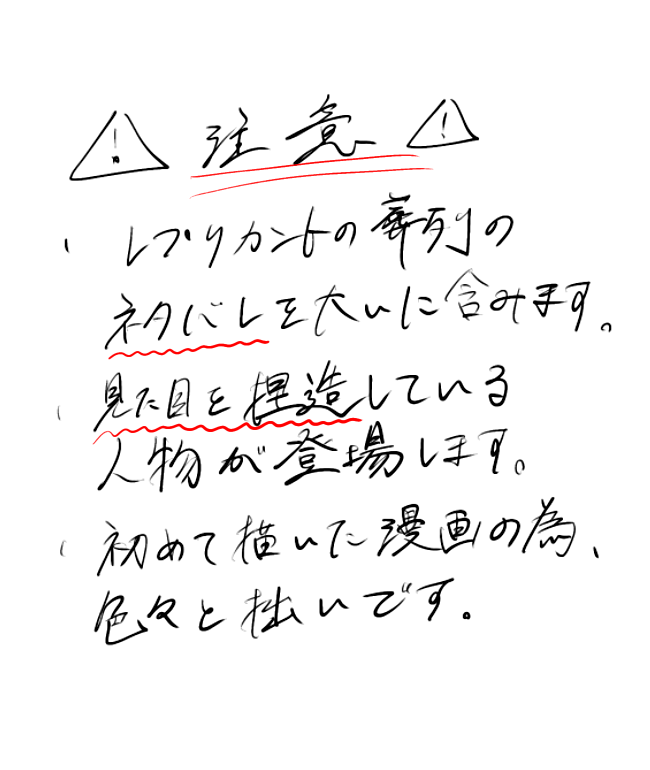 ⚠ 注意 ⚠
・レプリカントの葬列の
ネタバレを大いに含みます。
・見た目を捏造している
人物が登場します。
・初めて描いた漫画の為、
色々と拙いです。